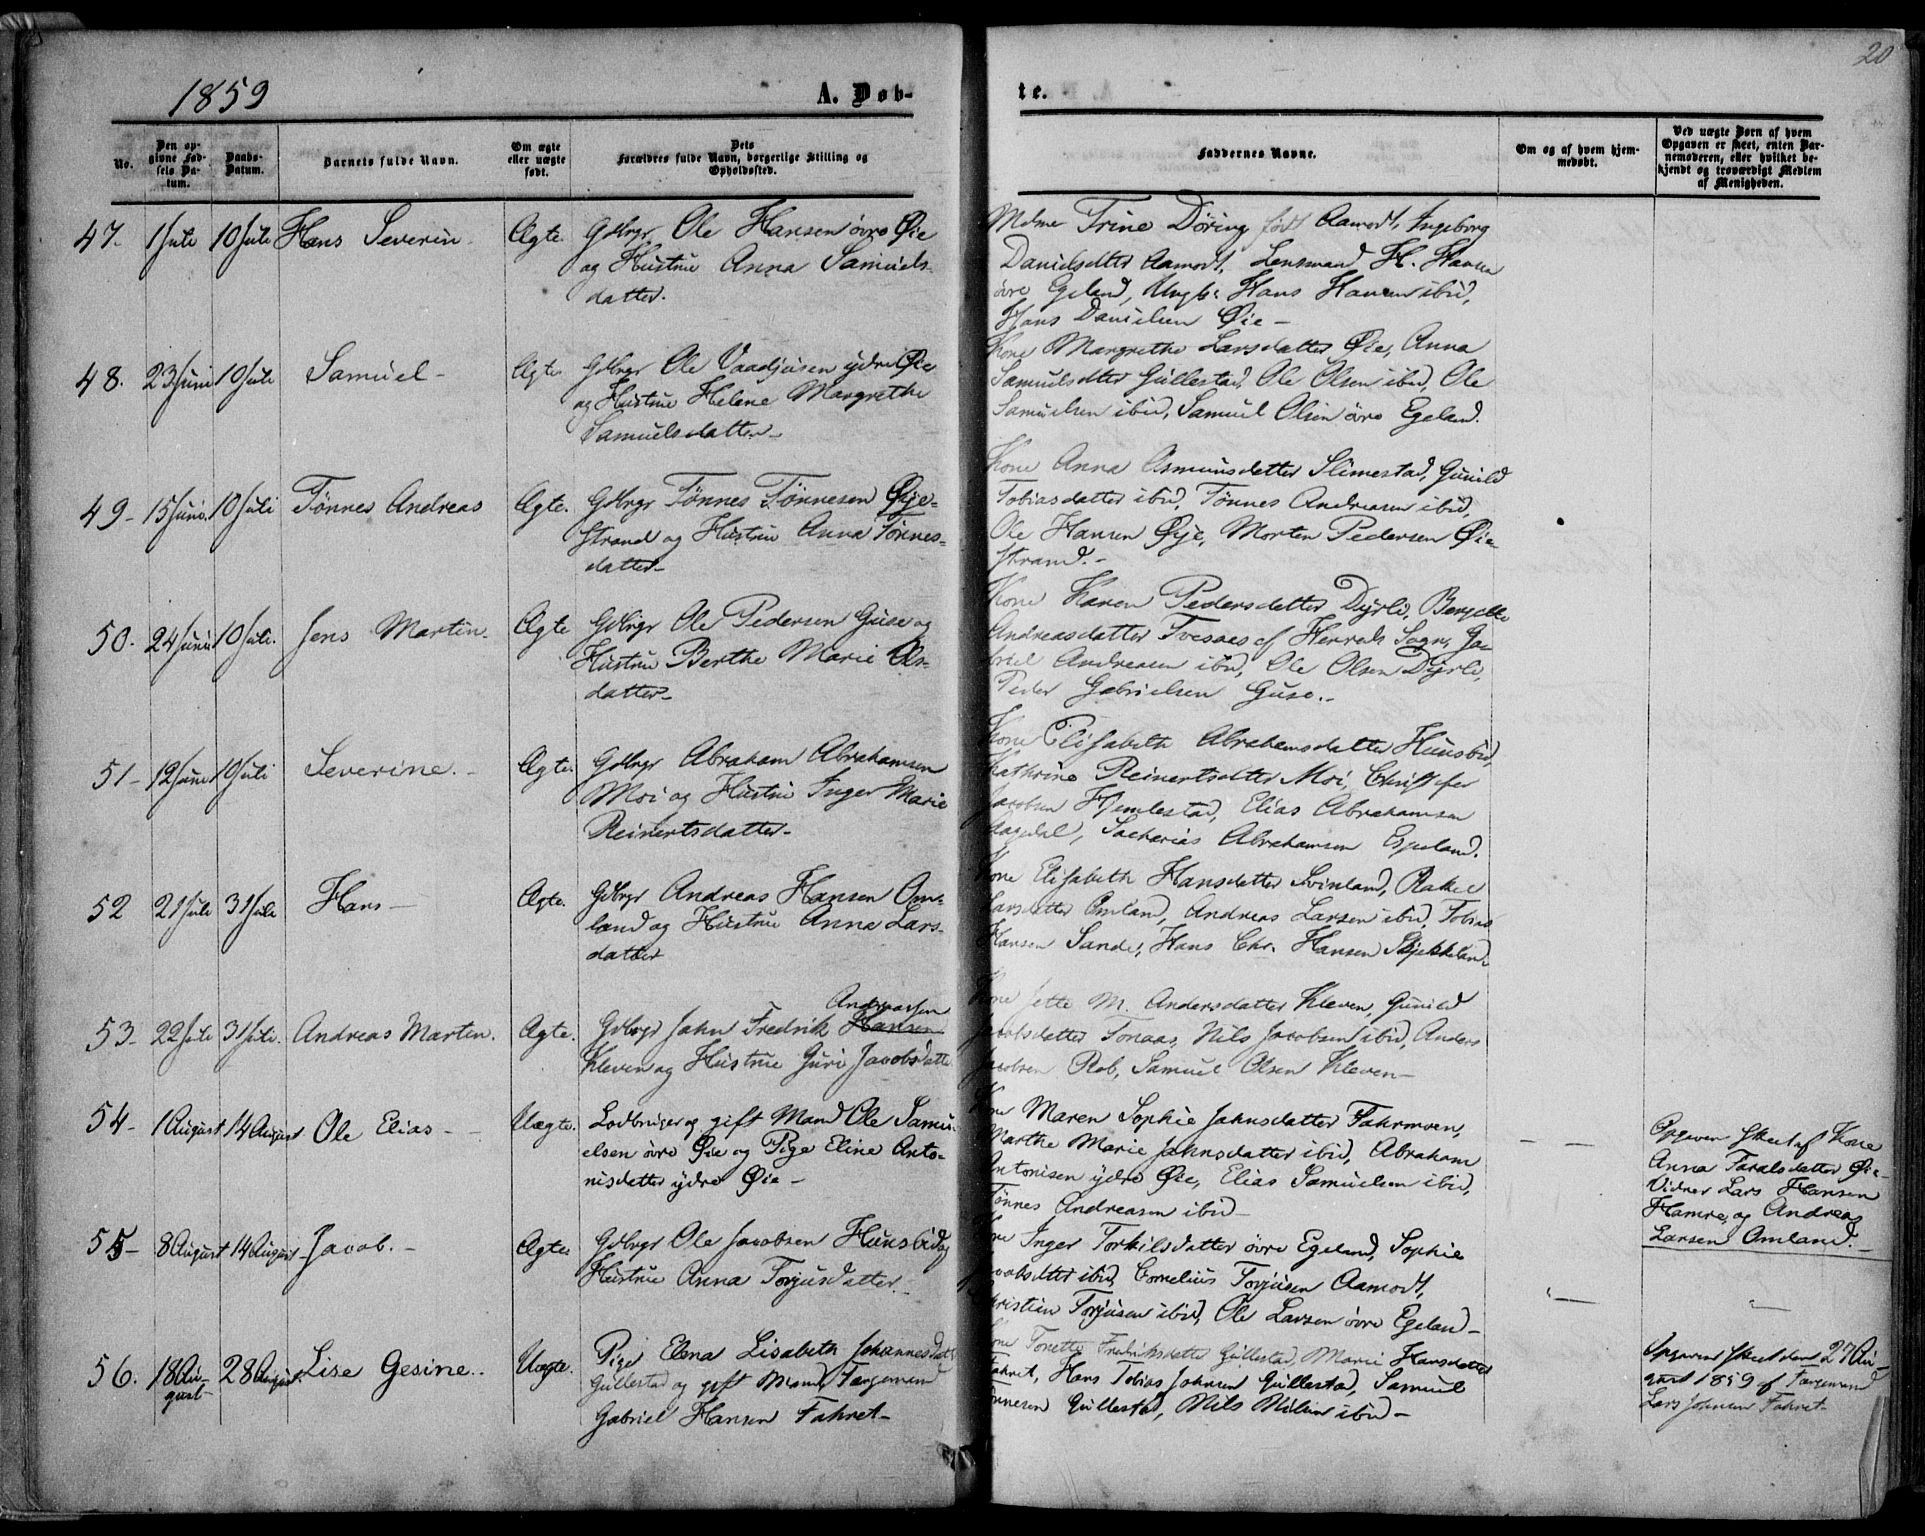 20
1859
A. Døb-
te.
No.
Den op-
givne Fød-
sels Da-
tum.
Daabs-
Datum.
Barnets fulde Navn.
Om ægte
eller uægte
født.
Dets
Forældres fulde Navn, borgerlige Stilling og
Opholdssted.
Faddernes Navne.
Om og af hvem hjem-
medøbt.
Ved uægte Børn af hvem
Opgaven er skeet, enten Bar-
nemoderen, eller hvilket be-
kjendt og troværdigt Medlem
af Menigheden.
47. 1 Juli 10 Juli Hans Severin - Ægte. Gdbrgr Ole Hansen övre Øie
og Hustrue Anna Samuels-
datter.
Mdme Trine Döring født Aamodt, Ingeborg
Danielsdtter Aamodt, Lensmand H. Hansen
övre Egeland, Ungk: Hans Hansen ibid,
Hans Danielsen Øie -
48. 23 Juni 10 Juli Samuel - Ægte Gdbrgr Ole Vaadjusen ydre Øie
og Hustrue Helene Margrethe
Samuelsdatter -
Kone Margrethe Larsdatter Øie, Anna
Samuelsdtter Gullestad, Ole Olsen ibid, Ole
Samuelsen ibid, Samuel Olsen övre Egeland.
49 - 15 Juni 10 Juli Tönnes Andreas Ægte. Gdbrgr Tönnes Tönnesen Øye-
strand og Hustrue Anna Tönnes-
datter -
Kone Anna Asmunsdatter Slimestad, Gunild
Tobiasdatter ibid, Tönnes Andreasen ibid,
Ole Hansen Øye, Morten Pedersen Øie-
strand. -
50. 24 Juni 10 Juli. Jens Martin. Ægte Gdbrgr Ole Pedersen Guse og
Hustrue Berthe Marie Ols-
datter -
Kone Karen Pedersdatter Dyrli, Bergitte
Andreasdatter Tvesaas af Herrads Sogn, Ga-
briel Andreasen ibid, Ole Olsen Dyrli,
Peder Gabrielsen Guse. -
51 - 12 Juni 10 Juli Severine. - Ægte. Gdbrgr Abraham Abrahamsen
Moi og Hustrue Inger Marie
Reinertsdatter -
Kone Elisabeth Abrahamsdatter Hunsbid,
Kathrine Reinertsdtter Moi, Christofer
Jacobsen Hjemlestad, Elias Abrahamsen
Aagedal, Sacharias Abrahamsen Espeland.
52 21 Juli 31 Juli Hans - Ægte. Gdbrgr Andreas Hansen Om-
land og Hustrue Anna Lars-
datter
Kone Elisabeth Hansdatter Svinland, Rakel
Larsdatter Omland, Andreas Larsen ibid, Tobias
Hansen Sande, Hans Chr. Hansen Skjekkeland.
53 - 22 Juli 31 Juli. Andreas Martin. Ægte. Gdbrgr Jahn Fredrik Hansen
Andreassen
Kleven og Hustrue Guri Jacobsdatte
Kone Jette M. Andersdatter Kleven, Gunild
Jacobsdatter Tonaas, Nils Jacobsen ibid, Anders
Jacobsen Rob, Samuel Olsen Kleven -
54 - 1 August 14 August Ole Elias - Uægte. Lodbruger og gift Mand Ole Samu-
elsen övre Øie og Pige Eline Anto-
nisdatter ydre Øie -
Kone Maren Sophie Jahnsdatter Fahrmoen,
Marthe Marie Jahnsdatter ibid, Abraham
Antonisen ydre Øie, Elias Samuelsen ibid,
Tönnes Andreasen ibid -
Opgaven skeet af Kone
Anna Taralsdatter Øie -
Vidner Lars Hansen
Hamre, og Andreas
Larsen Omland. -
55 - 8 August 14 August Jacob. - Ægte. Gdbrgr Ole Jacobsen Hunsbid og
Hustrue Anna Torjusdatter. -
Kone Inger Torkilsdatter övre Egeland, Sophie
Jacobsdtter ibid, Cornelius Torjusen Aamodt,
Christian Torjusen ibid, Ole Larsen övre Egeland -
56. 18 Au-
gust 28 August. Lise Gesine. - Uægte. Pige Elena Lisabeth Johannesdatt
Gullestad og gift Mand Færgemand
Gabriel Hansen Fahret -
Kone Tonette Fredriksdatter Gullestad, Marie Hansdatter
Fahret, Hans Tobias Johnsen Gullestad, Samuel
Tönnesen Gullestad, Nils Nilsen ibid -
Opgaven skeet den 27 Au-
gust 1859 af Færgemand
Lars Johnsen Fahret -